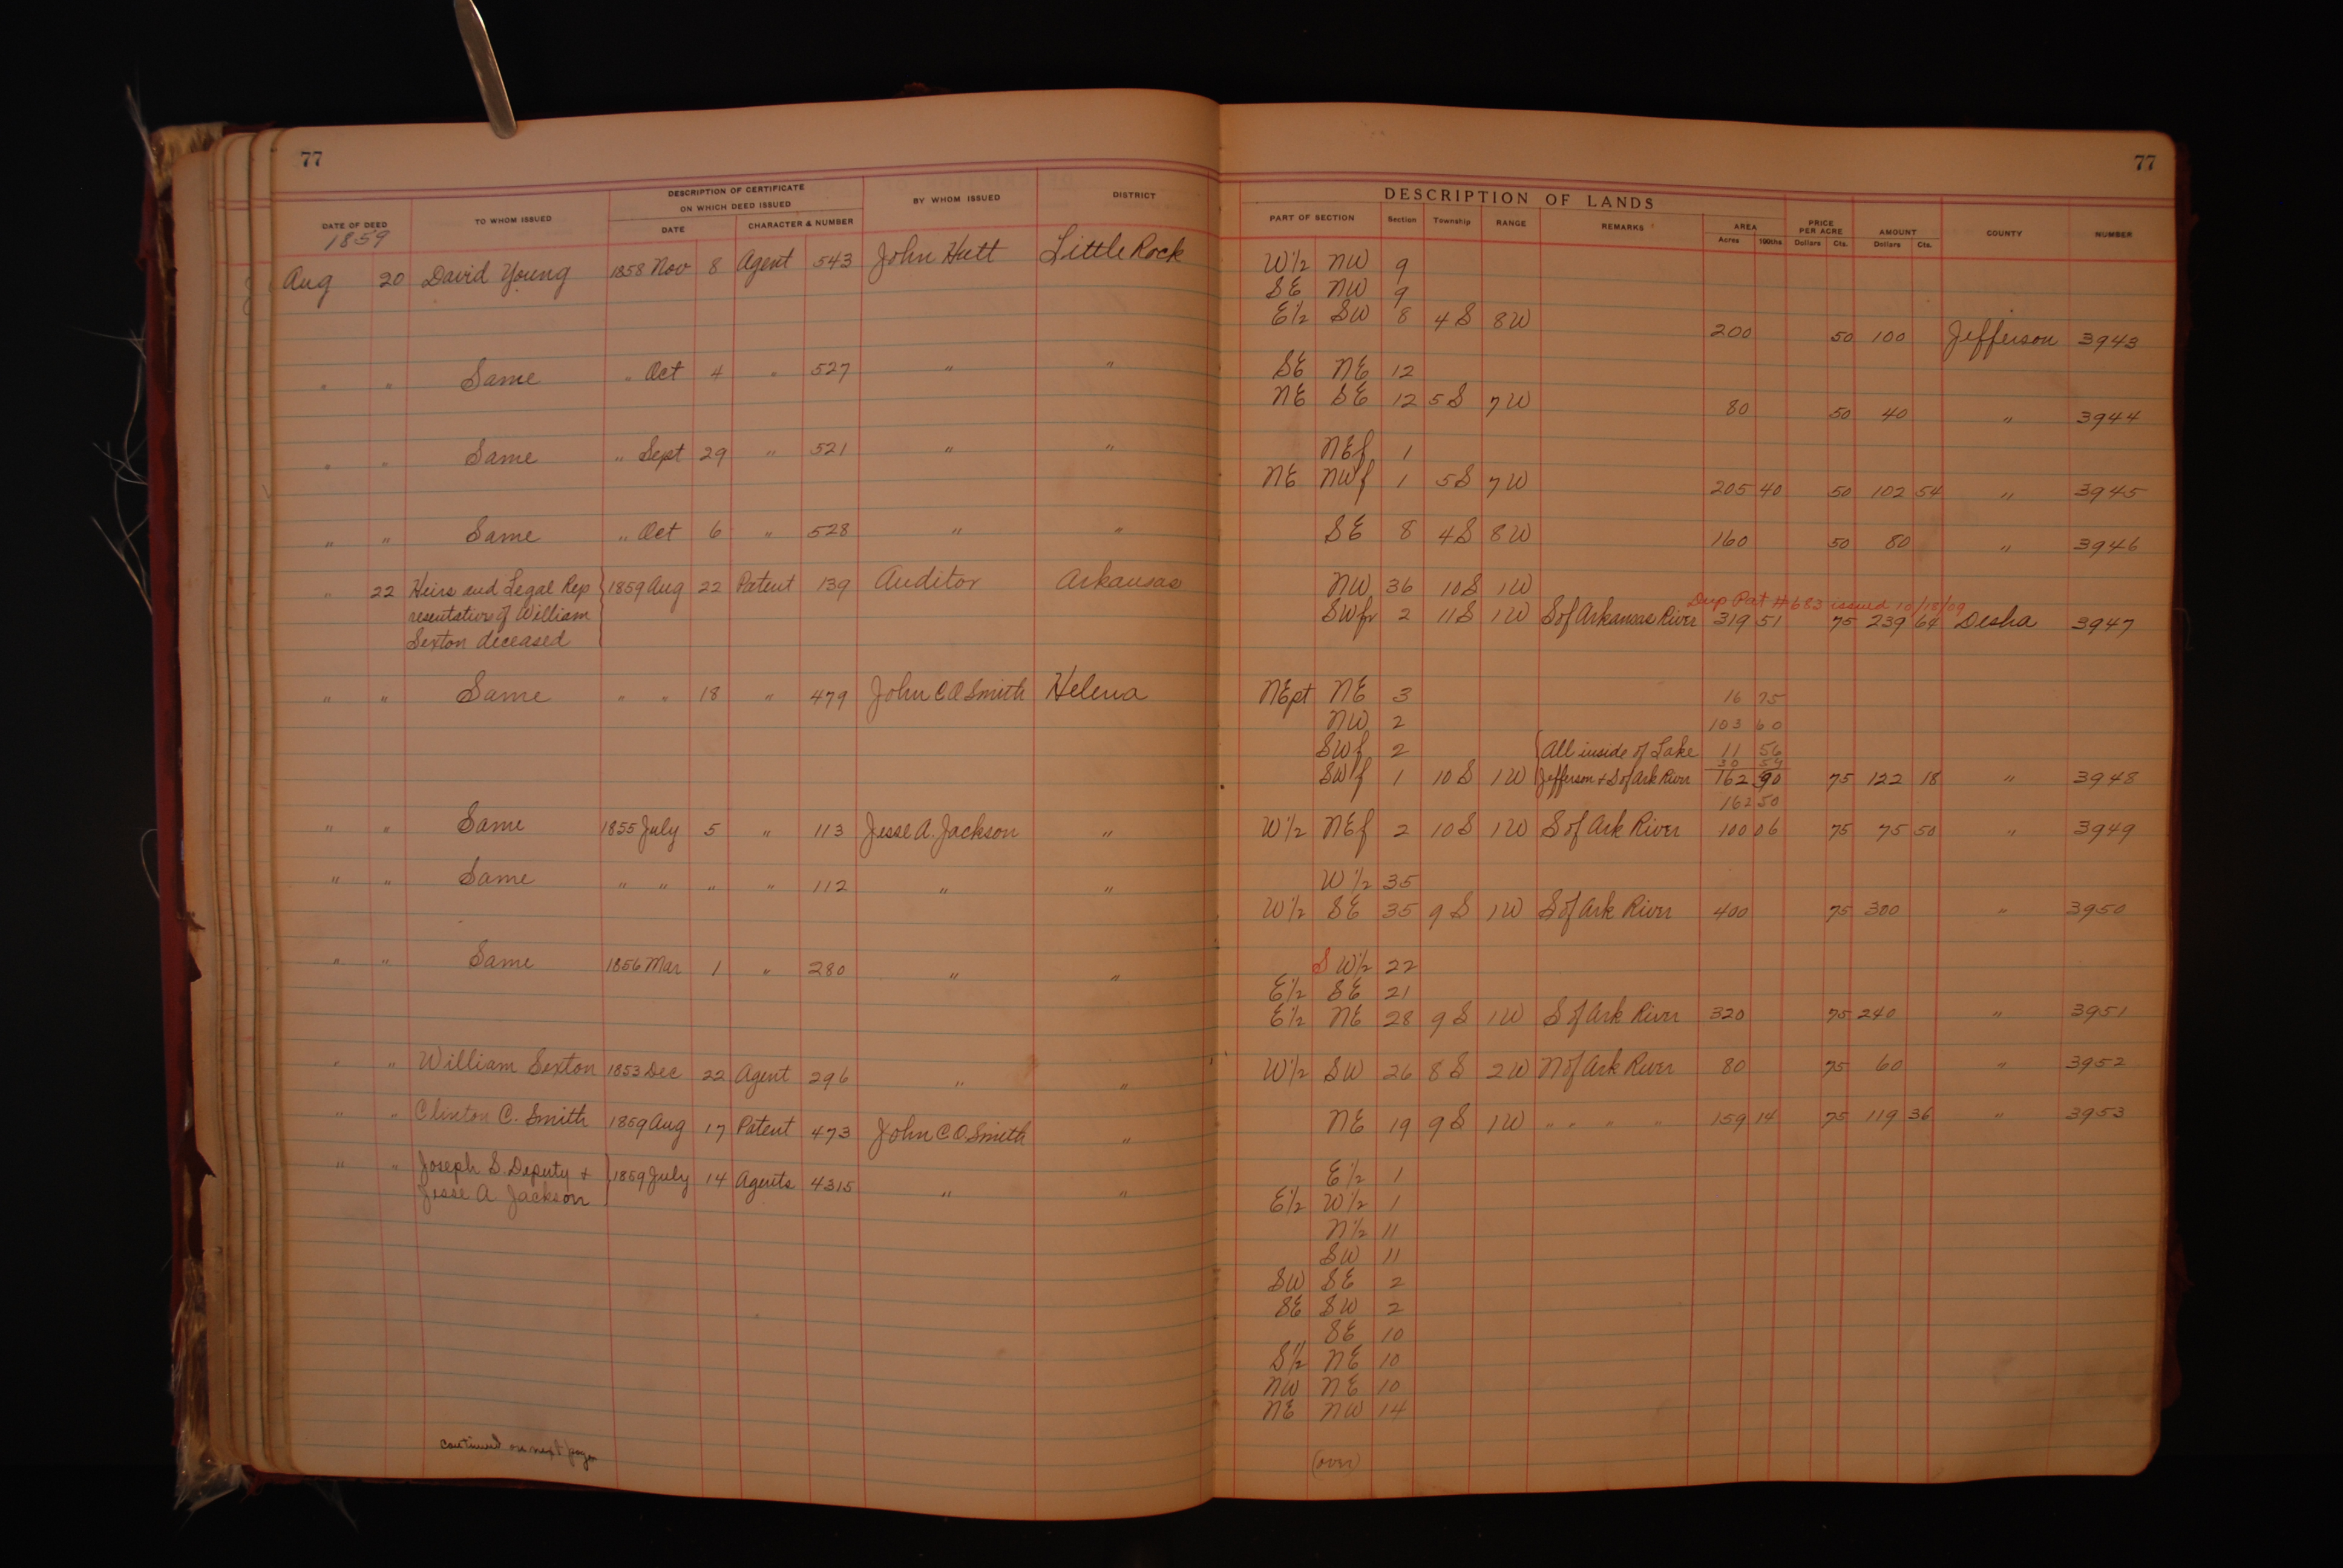 77
77
DESCRIPTION OF CERTIFICATE ON WHICH DEED ISSUED
DESCRIPTION OF LANDS
DATE OF DEED TO WHOM ISSUED DATE CHARACTER & NUMBER BY WHOM ISSUED DISTRICT PART OF SECTION Section Township RANGE REMARKS AREA Acres 100ths PRICE PER ACRE Dollars Cts. AMOUNT Dollars Cts. COUNTY NUMBER
1859
Aug 20 David Young 1858 Nov 8 Agent 543 John Hutt Little Rock W½ NW 9
SE NW 9
E½ SW 8 4S 8W 200 50 100 Jefferson 3943
" " Same " Oct 4 " 527 " " SE NE 12
NE SE 12 5S 7W 80 50 40 " 3944
" " Same " Sept 29 " 521 " " NEf 1
NE NWf 1 5S 7W 205 40 50 102 54 " 3945
" " Same " Oct 6 " 528 " " SE 8 4S 8W 160 50 80 " 3946
" 22 Heirs and Legal Rep 1859 Aug 22 Patent 139 Auditor Arkansas NW 36 10S 1W
Dup Pat #683 issued 10/18/09
resentative of William SWfr 2 11S 1W S of Arkansas River 319 51 75 239 64 Desha 3947
Sexton deceased
" " Same " " 18 " 479 John C O Smith Helena NEpt NE 3 16 75
NW 2 103 60
SWf 2 All inside of Lake 11 56
30 59
SWf 1 10S 1W Jefferson + S of Ark River 162 90 75 122 18 " 3948
162 50
" " Same 1855 July 5 " 113 Jesse A. Jackson " W½ NEf 2 10S 1W S of Ark River 100 06 75 75 50 " 3949
" " Same " " " " 112 " " W½ 35
W½ SE 35 9S 1W S of Ark River 400 75 300 " 3950
" " Same 1856 Mar 1 " 280 " " S W½ 22
E½ SE 21
E½ NE 28 9S 1W S of Ark River 320 75 240 " 3951
" " William Sexton 1853 Dec 22 Agent 296 " " W½ SW 26 8S 2W N of Ark River 80 75 60 " 3952
" " Clinton C. Smith 1859 Aug 17 Patent 473 John C O. Smith " NE 19 9S 1W " " " " 159 14 75 119 36 " 3953
" " Joseph S. Deputy + 1859 July 14 Agents 4315 " " E½ 1
Jesse A Jackson E½ W½ 1
N½ 11
SW 11
SW SE 2
SE SW 2
SE 10
S½ NE 10
NW NE 10
NE NW 14
continued on next page
(over)